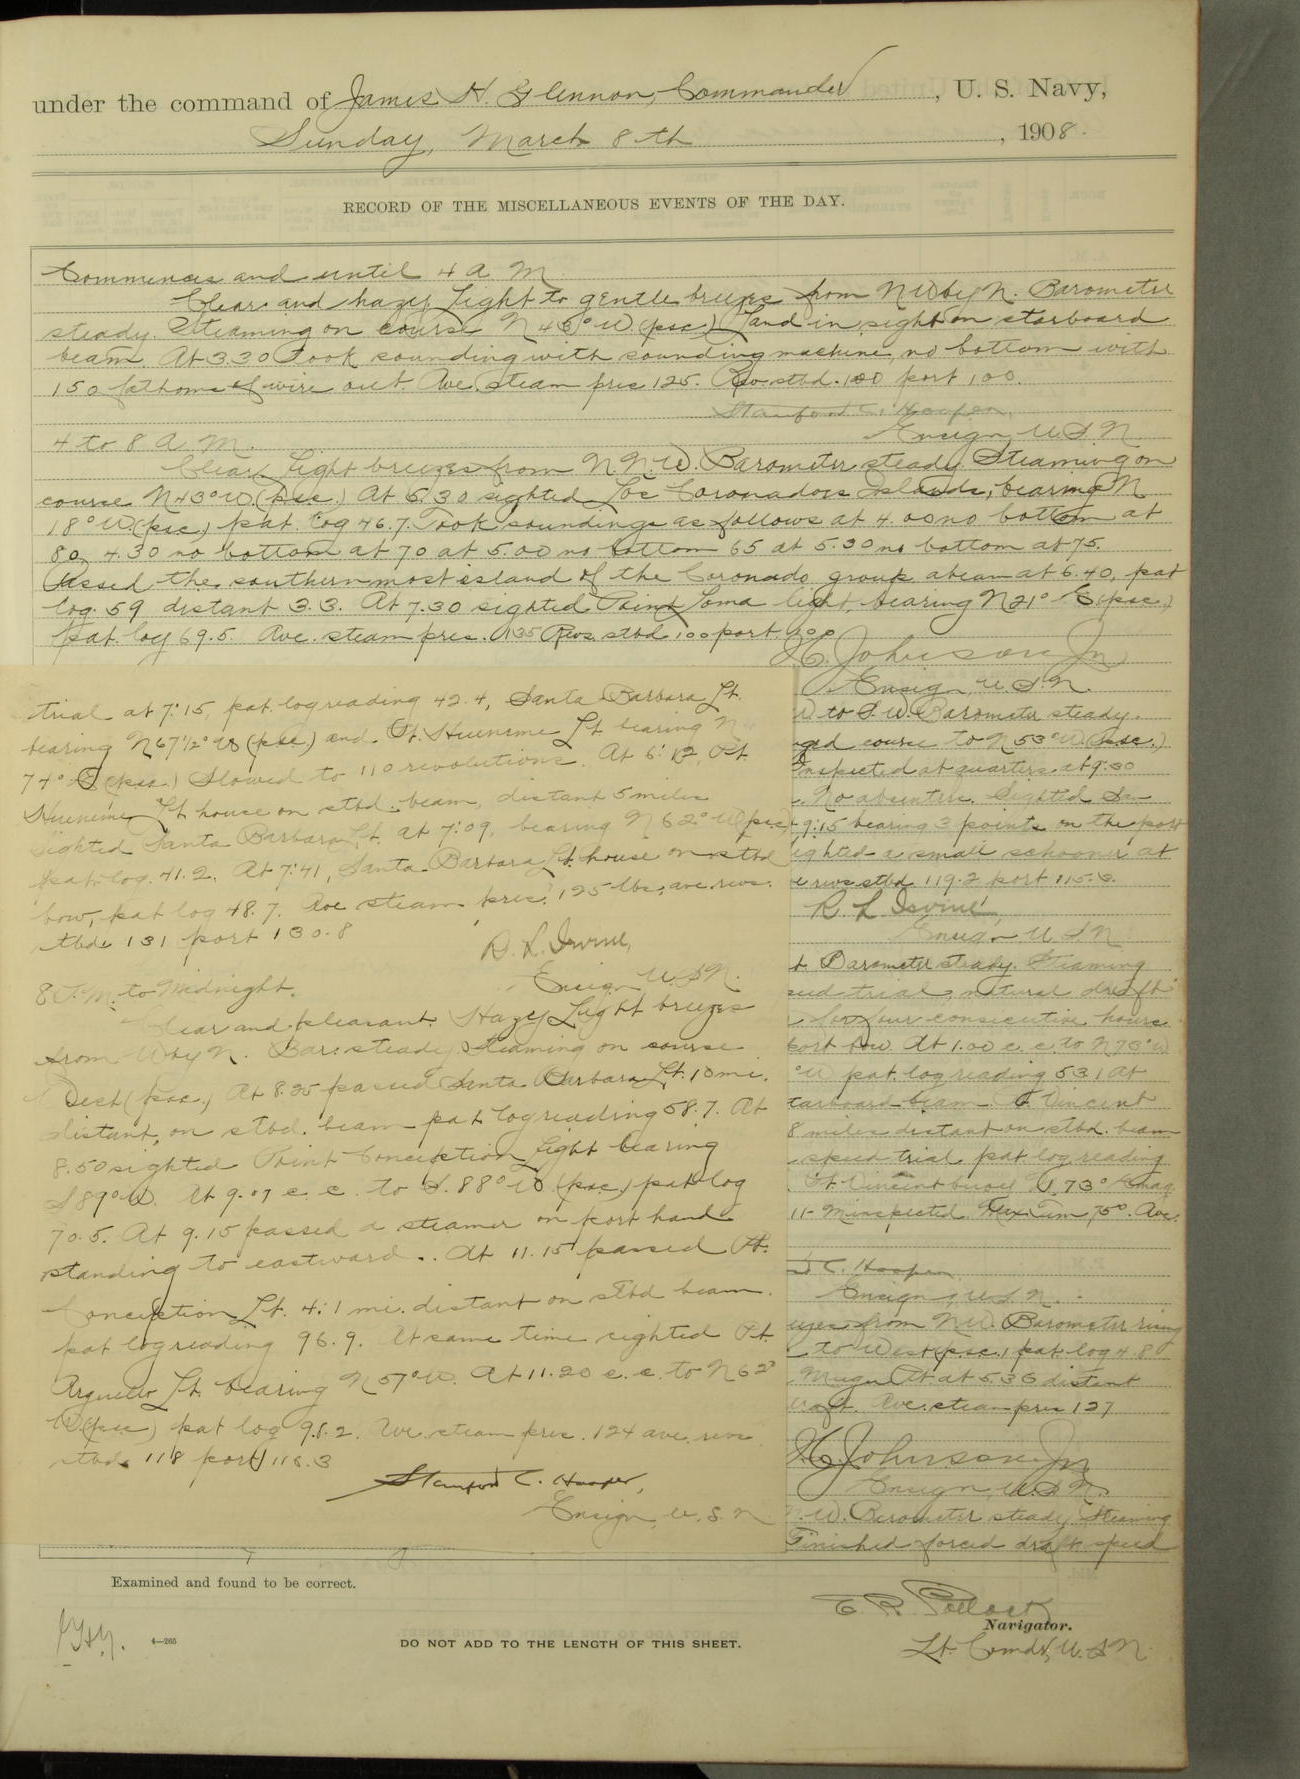 under the command of James H. Glennon, Commander, U. S. Navy,
Sunday, March 8th, 1908.
RECORD OF THE MISCELLANEOUS EVENTS OF THE DAY.
Commences and until 4 A. M.
Clear and hazy Light to gentle breezes from NW by N. Barometer
steady. Steaming on course N 43° W (psc) Land in sight on starboard
beam. At 3.30 Took sounding with sounding machine, no bottom with
150 fathoms of wire out. Ave. Steam pres 125. Rev. stbd. 100 port 100.
Stanford C. Hooper,
4 to 8 A. M.
Ensign, U.S.N.
Clear. Light breezes from N N. W. Barometer steady. Steaming on
course N 43° W (psc.) At 6.30 sighted Los Coronados Islands, bearing N
18° W (psc.) pat. log 46.7. Took soundings as follows at 4.00 no bottom at
80, 4.30 no bottom at 70 at 5.00 no bottom 65 at 5.30 no bottom at 75.
Passed the southernmost island of the Coronado group abeam at 6.40, pat
log. 59 distant 3.3. At 7.30 sighted Point Loma light, bearing N 21° E (psc.)
pat. log 69.5. Ave. steam pres. 135 Revs. stbd 100 port 100
H. Johnson Jr
Ensign, U.S.N.
W to S. W. Barometer steady.
ged course to N 53° W (psc.)
Inspected at quarters at 9:30
No absentees. Sighted Sa-
9:15 bearing 3 points on the port
ighted a small schooner at
revs stbd 119.2 port 115.3.
R. L. Irvine,
Ensign U.S.N
t. Barometer steady. Steaming
eed trial, natural draft
for four consecutive hours
port bow. At 1.00 c. c. to N 73° W
°W pat. log reading 53.1 At
tarboard beam. Pt. Vincent
8 miles distant on stbd. beam
speed trial pat log reading
Pt. Vincent buoy N. 73° E mag
inspected. Max. Tem 75°. Ave.
d C. Hooper
Ensign, U.S.N.
ezes from NW. Barometer rising
to West (psc.) pat. log 4.8
Mugu Pt. at 5.36 distant
raft. Ave. steam pres 127
H. Johnson Jr
Ensign, U.S.N.
W. Barometer steady. Steaming
Finished forced draft speed
trial at 7:15, pat. log reading 42.4, Santa Barbara Lt.
bearing N 67 1/2° W (psc.) and Pt. Hueneme Lt. bearing N
74° E (psc.) Slowed to 110 revolutions. At 6:12, Pt.
Hueneme Lt. house on stbd. beam, distant 5 miles
Sighted Santa Barbara Lt. at 7:09, bearing N 62° W (psc)
pat. log. 41.2. At 7:41, Santa Barbara Lt. house on stbd
bow, pat log 48.7. Ave steam pres. 125 lbs, ave. revs.
stbd. 131 port 130.8
R. L. Irvine,
Ensign U.S.N.
8 P.M. to Midnight.
Clear and pleasant. Hazy Light breezes
from W by N. Bar: steady. Steaming on course
West (psc.) At 8.25 passed Santa Barbara Lt. 10 mi.
distant, on stbd. beam pat log reading 58.7. At
8.50 sighted Point Conception Light bearing
S 89° W. At 9.07 c. c. to S. 88° W (psc.) pat log
70.5. At 9.15 passed a steamer on port hand
standing to eastward. At 11.15 passed Pt.
Conception Lt. 4.1 mi. distant on stbd beam.
pat log reading 96.9. At same time sighted Pt.
Arguello Lt. bearing N 57° W. At 11.20 c. c. to N 62°
W (psc) pat log 98.2. Ave. steam pres. 124 ave. revs
stbd. 118 port 118.3
Stanford C. Hooper,
Ensign, U. S. N
Examined and found to be correct.
E R. Pollock
Navigator.
Lt. Comdr, U.S.N.
J.H.G.
4—265
DO NOT ADD TO THE LENGTH OF THIS SHEET.